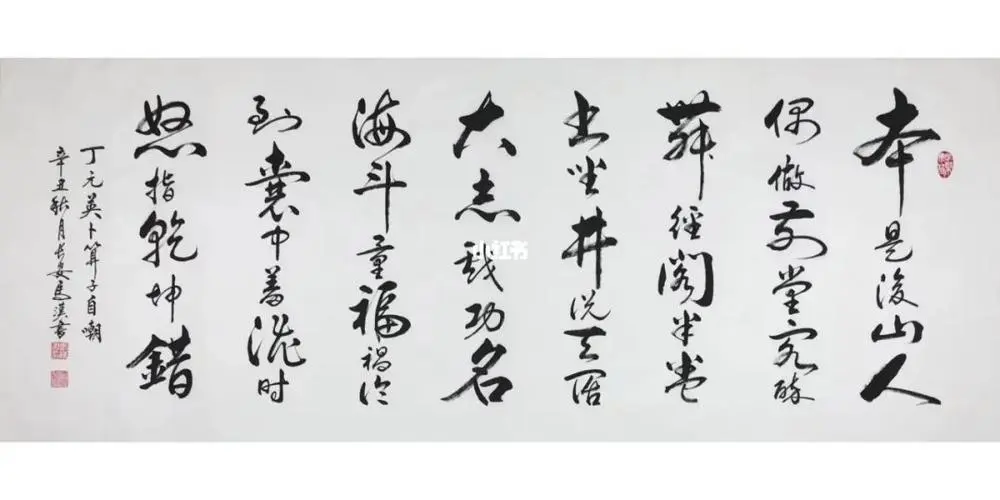 本是後山人
偶做前堂客醉
舞經閣半卷
书坐井说天阔
大志戏功名
海斗量福禍论
到囊中羞澁时
怒指乾坤錯
丁元英卜算子自嘲
辛丑秋月长安马书
小红书